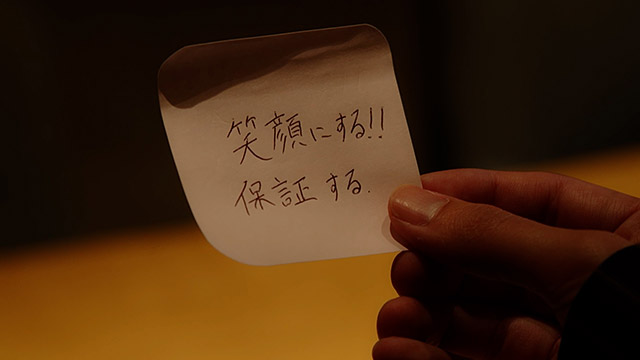 笑顔にする!!
保証する.